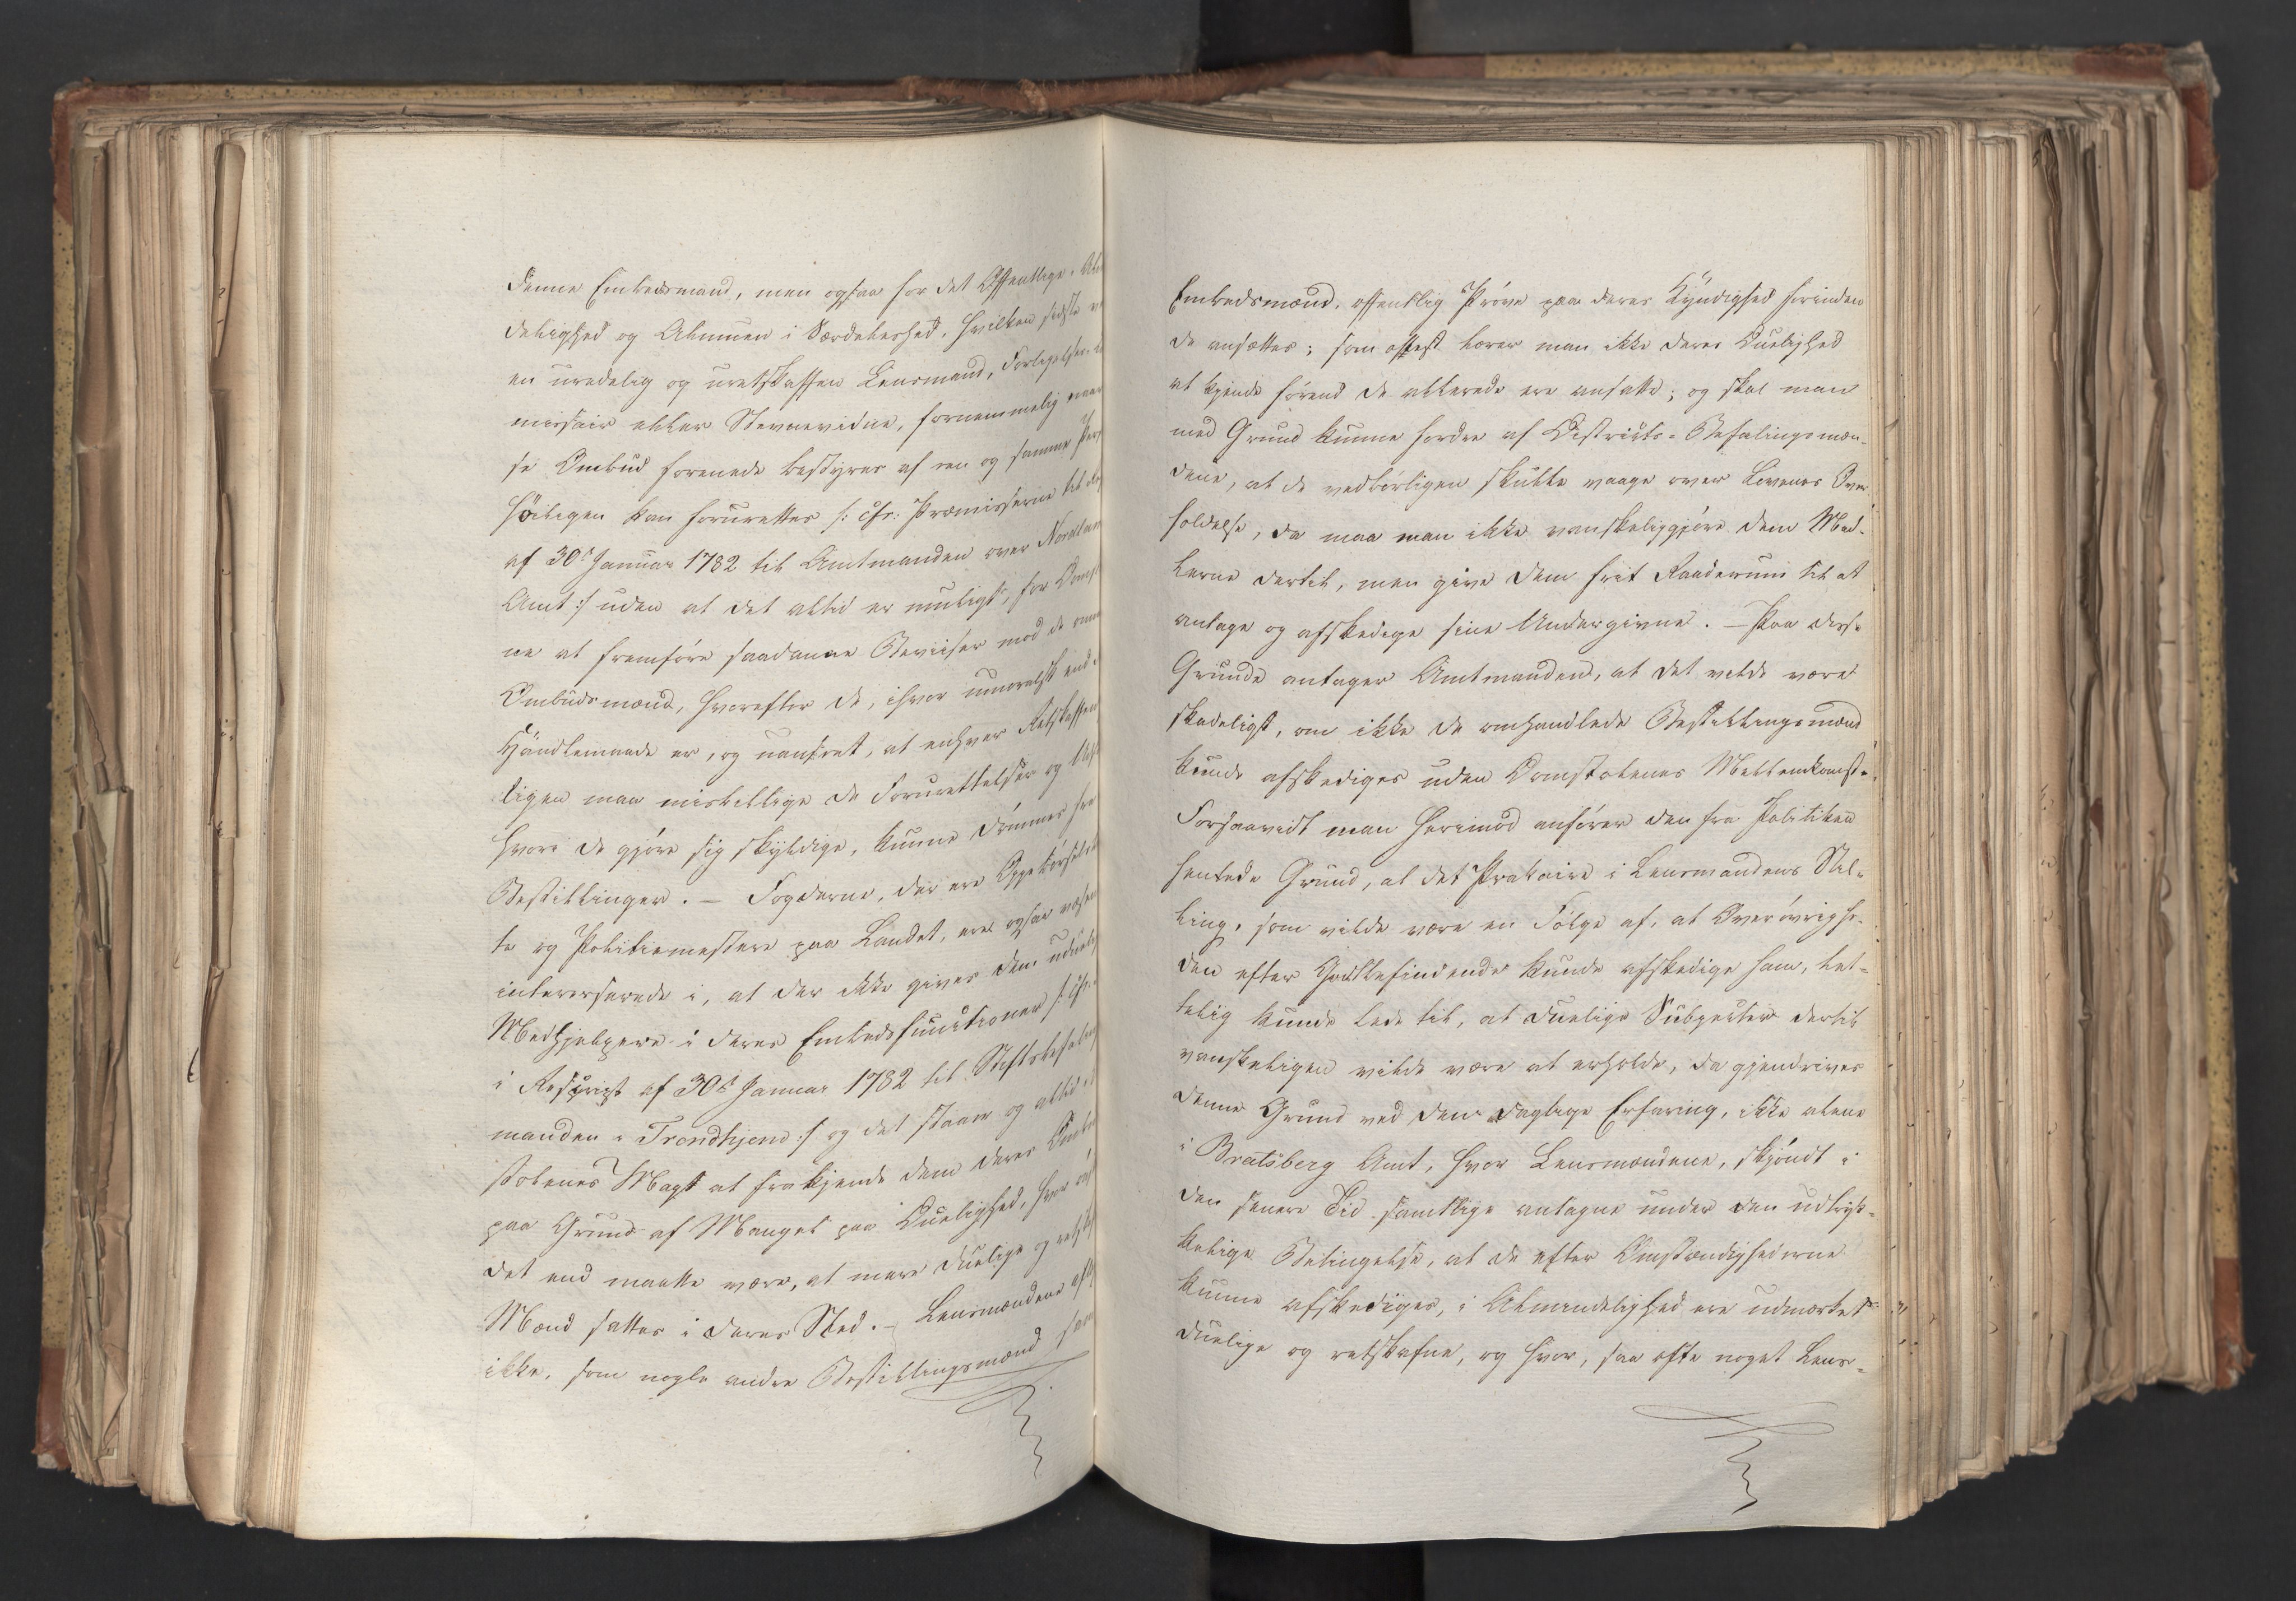 denne Embedsmand, men ogsaa for det Offentlige i Alm
delighed og Almuen i Særdeleshed, hvilken sidste v
en uredelig og uretskaffen Lensmand, Forligelses-
missair eller Stevnevidne, fornemmelig naar
se Ombud forenede bestyres af een og samme Pers
høiligen kan forurettes /: cfr. Præmisserne til
af 30te Januar 1782 til Amtmanden over Nordlan
Amt :/ uden at det altid er muligt, for Domst
ne at fremføre saadanne Beviiser mod de om
Ombudsmænd, hvorefter de, ihvor umoralsk end
Handlemaade er, og uanseet, at enhver Retskaffen
ligen maa misbillige de Forurettelser og
hvori de gjøre sig skyldige, kunne dømmes fra
Bestillinger. — Fogderne, der ere Oppebørsels
te og Politiemestere paa Landet, ere ogsaa væsen
interesserede i, at der ikke gives dem uduel
Medhjelpere i deres Embedsfunctioner /: cfr.
i Rescript af 30te Januar 1782 til Stiftsbefalin
manden i Trondhjem :/ og det staaer og altid i
stolenes Magt at frakjende dem deres Ombu
paa Grund af Mangel paa Duelighed, hvor
det end maatte være, at mere duelige og retsk
Mænd sattes i deres Sted. — Lensmændene afl
ikke, som nogle andre Bestillingsmænd som
Embedsmænd, offentlig Prøve paa deres Kyndighed forinden
de ansættes; som oftest lærer man ikke deres Duelighed
at kjende førend de allerede ere ansatte; og skal man
med Grund kunne fordre af Districts-Befalingsmæn-
dene, at de vedbørligen skulle vaage over Lovenes Over-
holdelse, da maa man ikke vanskeliggjøre dem Mid-
lerne dertil, men give dem frit Raaderum til at
antage og afskedige sine Undergivne. — Paa disse
Grunde antager Amtmanden, at det vilde være
skadeligt, om ikke de omhandlede Bestillingsmænd
kunde afskediges uden Domstolenes Mellemkomst.
Forsaavidt man herimod anfører den fra Politiken
hentede Grund, at det Prekaire i Lensmandens Stil-
ling, som vilde være en Følge af, at Overøvrighe-
den efter Godtbefindende kunde afskedige ham, let-
telig kunde lede til, at duelige Subjecter dertil
vanskeligen vilde være at erholde, da gjendrives
denne Grund ved den daglige Erfaring, ikke alene
i Bratsberg Amt, hvor Lensmændene, skjøndt i
den senere Tid samtlige antagne under den udtryk-
kelige Betingelse, at de efter Omstændighederne
kunne afskediges, i Almindelighed ere udmærket
duelige og retskafne, og hvor, saa ofte noget Lens-